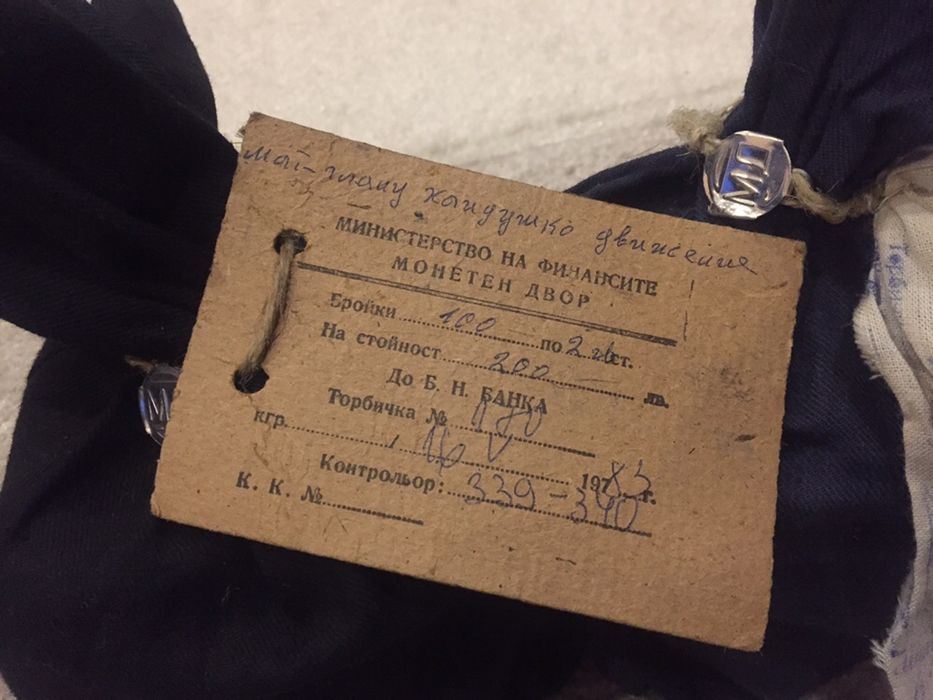 мат-гланц хайдушко движение
МИНИСТЕРСТВО НА ФИНАНСИТЕ
МОНЕТЕН ДВОР
Бройки 100 по 2 лв ст.
На стойност 200 лв.
До Б. Н. БАНКА
Торбичка №
кгр. / 16 V 1983 г.
Контрольор: 339-340
К. К. №